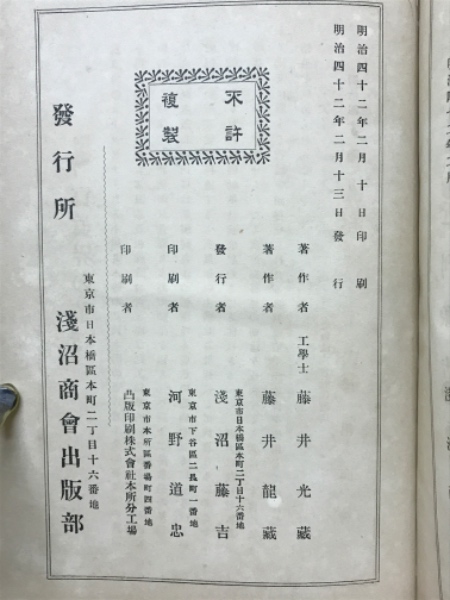 明治四十二年二月十日印刷
明治四十二年二月十三日發行
不許
複製
著作者 工學士 藤井光藏
著作者 藤井龍藏
東京市日本橋區本町二丁目十六番地
發行者 淺沼藤吉
東京市下谷區二長町一番地
印刷者 河野道忠
東京市本所區番場町四番地
印刷者 凸版印刷株式會社本所分工場
東京市日本橋區本町二丁目十六番地
發行所 淺沼商會出版部